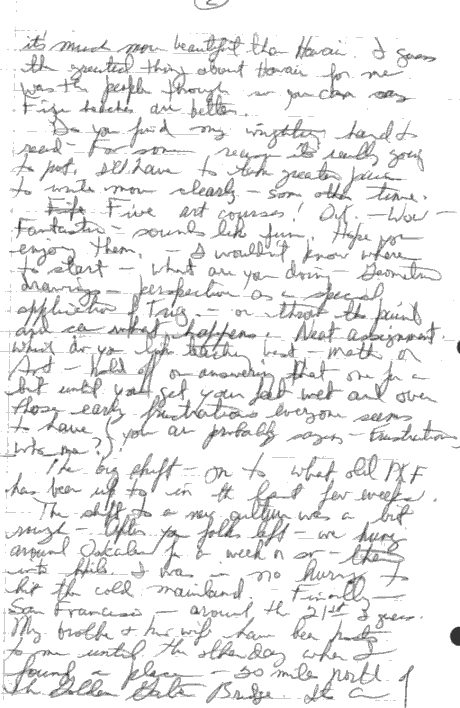 2
it's much more beautiful than Hawaii. I guess
the greatest thing about Hawaii for me
was the people though so you can say
Fiji beaches are better.
Do you find my writing hard to
read - For some reason it's really going
to pot. I'll have to take greater pains
to write more clearly - some other time.
Five art courses! Oy. - Wow -
Fantastic - sounds like fun. Hope you
enjoy them. - I wouldn't know where
to start - what are you doing - Geometric
drawings - perspective as a special
application of Trig. - or throw the paint
and see what happens. Neat assignment.
What do you like teaching best - math or
Art - hold off on answering that one for a
bit until you get your feet wet and over
those early frustrations everyone seems
to have (you are probably saying - frustrations
who me?).
The big shift - on to what old
has been up to in the last few weeks.
The shift to a new culture was a bit
rough - After you folks left - we hung
around for a week or so - then
into. I was in no hurry to
hit the cold mainland. - Finally -
San Francisco - around the 21st I guess.
My brother & his wife have been hosts
to me until the other day when I
found a place - 20 miles north of
the Golden Gate Bridge. It's a